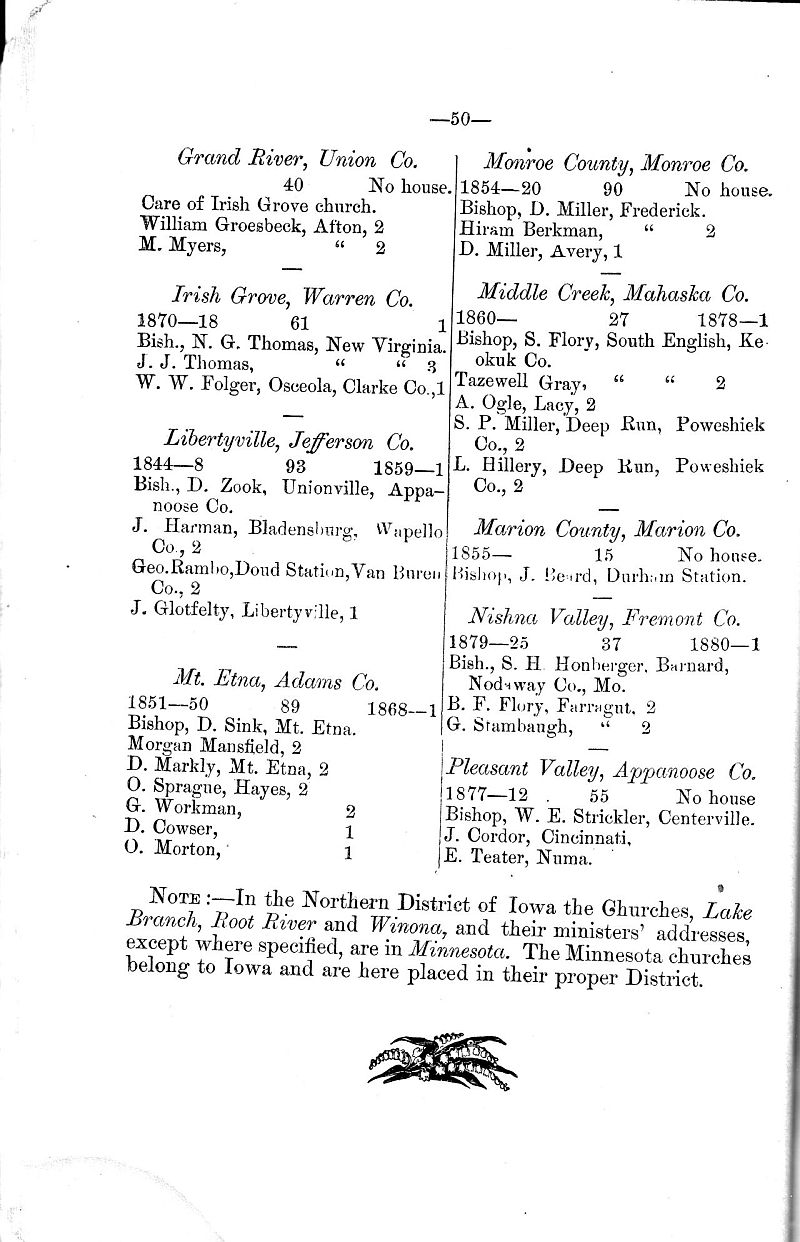 —50—
Grand River, Union Co.
40 No house.
Care of Irish Grove church.
William Groesbeck, Afton, 2
M. Myers, “ 2
Irish Grove, Warren Co.
1870—18 61 1
Bish., N. G. Thomas, New Virginia.
J. J. Thomas, “ “ 3
W. W. Folger, Osceola, Clarke Co.,1
Libertyville, Jefferson Co.
1844—8 93 1859—1
Bish., D. Zook, Unionville, Appa-
noose Co.
J. Harman, Bladensburg, Wapello
Co., 2
Geo. Rambo, Doud Station, Van Buren
Co., 2
J. Glotfelty, Libertyville, 1
Mt. Etna, Adams Co.
1851—50 89 1868—1
Bishop, D. Sink, Mt. Etna.
Morgan Mansfield, 2
D. Markly, Mt. Etna, 2
O. Sprague, Hayes, 2
G. Workman, 2
D. Cowser, 1
O. Morton, 1
Monroe County, Monroe Co.
1854—20 90 No house.
Bishop, D. Miller, Frederick.
Hiram Berkman, “ 2
D. Miller, Avery, 1
Middle Creek, Mahaska Co.
1860— 27 1878—1
Bishop, S. Flory, South English, Ke-
okuk Co.
Tazewell Gray, “ “ 2
A. Ogle, Lacy, 2
S. P. Miller, Deep Run, Poweshiek
Co., 2
L. Hillery, Deep Run, Poweshiek
Co., 2
Marion County, Marion Co.
1855— 15 No house.
Bishop, J. Beard, Durham Station.
Nishna Valley, Fremont Co.
1879—25 37 1880—1
Bish., S. H. Honberger, Barnard,
Nodaway Co., Mo.
B. F. Flory, Farragut, 2
G. Stambaugh, “ 2
Pleasant Valley, Appanoose Co.
1877—12 55 No house
Bishop, W. E. Strickler, Centerville.
J. Cordor, Cincinnati,
E. Teater, Numa.
NOTE :—In the Northern District of Iowa the Ghurches, Lake
Branch, Root River and Winona, and their ministers’ addresses,
except where specified, are in Minnesota. The Minnesota churches
belong to Iowa and are here placed in their proper District.